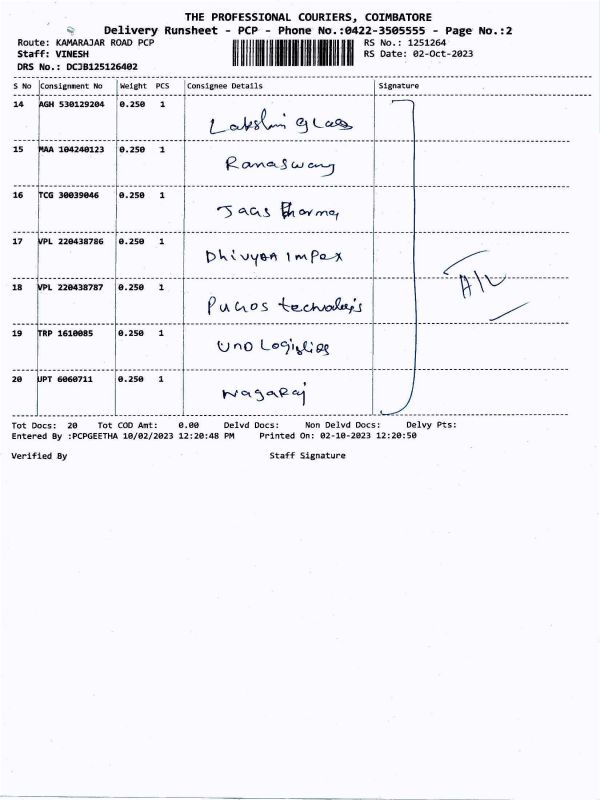 THE PROFESSIONAL COURIERS, COIMBATORE
Delivery Runsheet - PCP - Phone No.:0422-3505555 - Page No.:2
Route: KAMARAJAR ROAD PCP RS No.: 1251264
Staff: VINESH RS Date: 02-Oct-2023
DRS No.: DCJB125126402
S No Consignment No Weight PCS Consignee Details Signature
14 AGH 530129204 0.250 1 Lakshmi Glass
15 MAA 104240123 0.250 1 Ramaswamy
16 TCG 30039046 0.250 1 Jaas Pharma
17 VPL 220438786 0.250 1 Dhivyaa Impex
18 VPL 220438787 0.250 1
19 TRP 1610085 0.250 1 Uno Logistics
20 UPT 6060711 0.250 1 Nagaraj
Tot Docs: 20 Tot COD Amt: 0.00 Delvd Docs: Non Delvd Docs: Delvy Pts:
Entered By :PCPGEETHA 10/02/2023 12:20:48 PM Printed On: 02-10-2023 12:20:50
Verified By Staff Signature